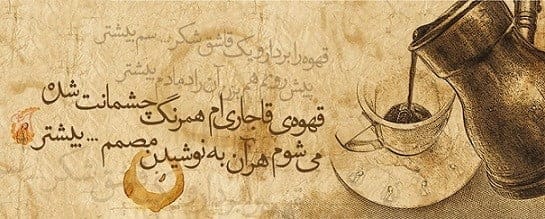 قهوه را بردار و یک قاشق شکر... سم بیشتر
پیش رویم هم بزن آن را دمادم بیشتر
قهوه‌ی قاجاری‌ام همرنگ چشمانت شده
می شوم هر آن به نوشیدن مصمم ... بیشتر